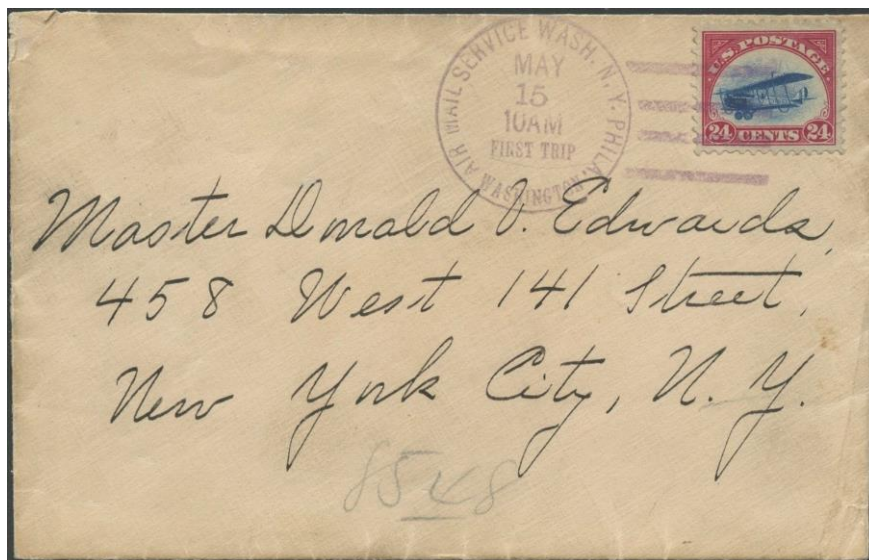 AIR MAIL SERVICE WASH. N.Y. PHILA.
MAY
15
10AM
FIRST TRIP
WASHINGTON
U.S. POSTAGE
24 CENTS 24
Master Donald V. Edwards,
458 West 141 Street,
New York City, N. Y.
8548